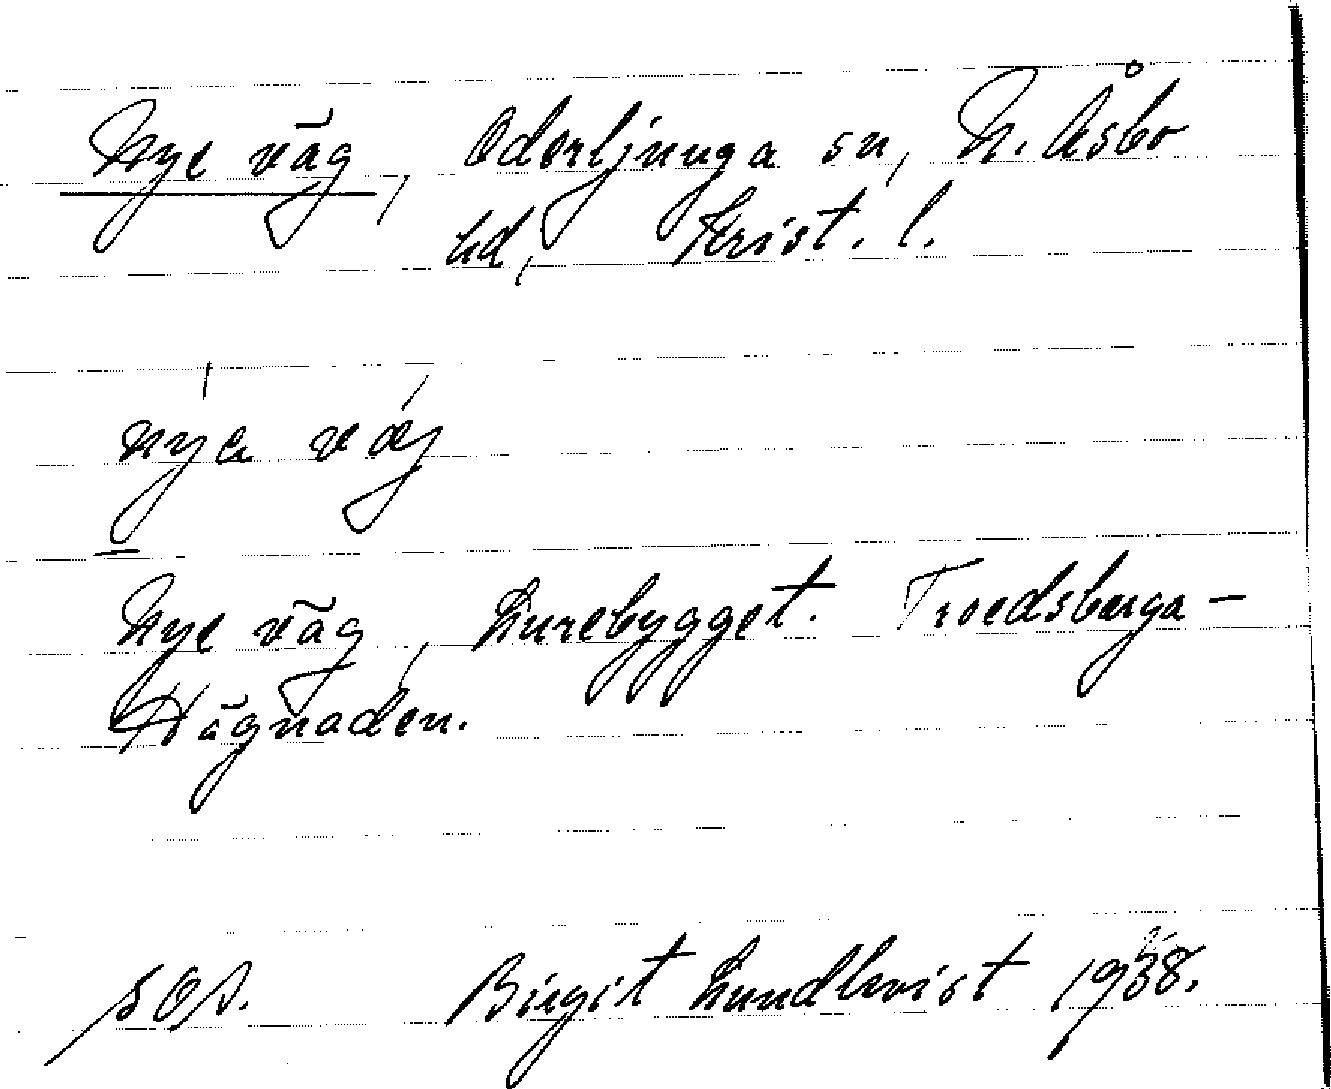 Nye väg, Oderljunga sn, N. Åsbo
hd, Krist. l.
nýa vǽj
Nye väg, Lurebygget. Troedsberga-
Hägnaden.
Birgit Lundkvist 1938.